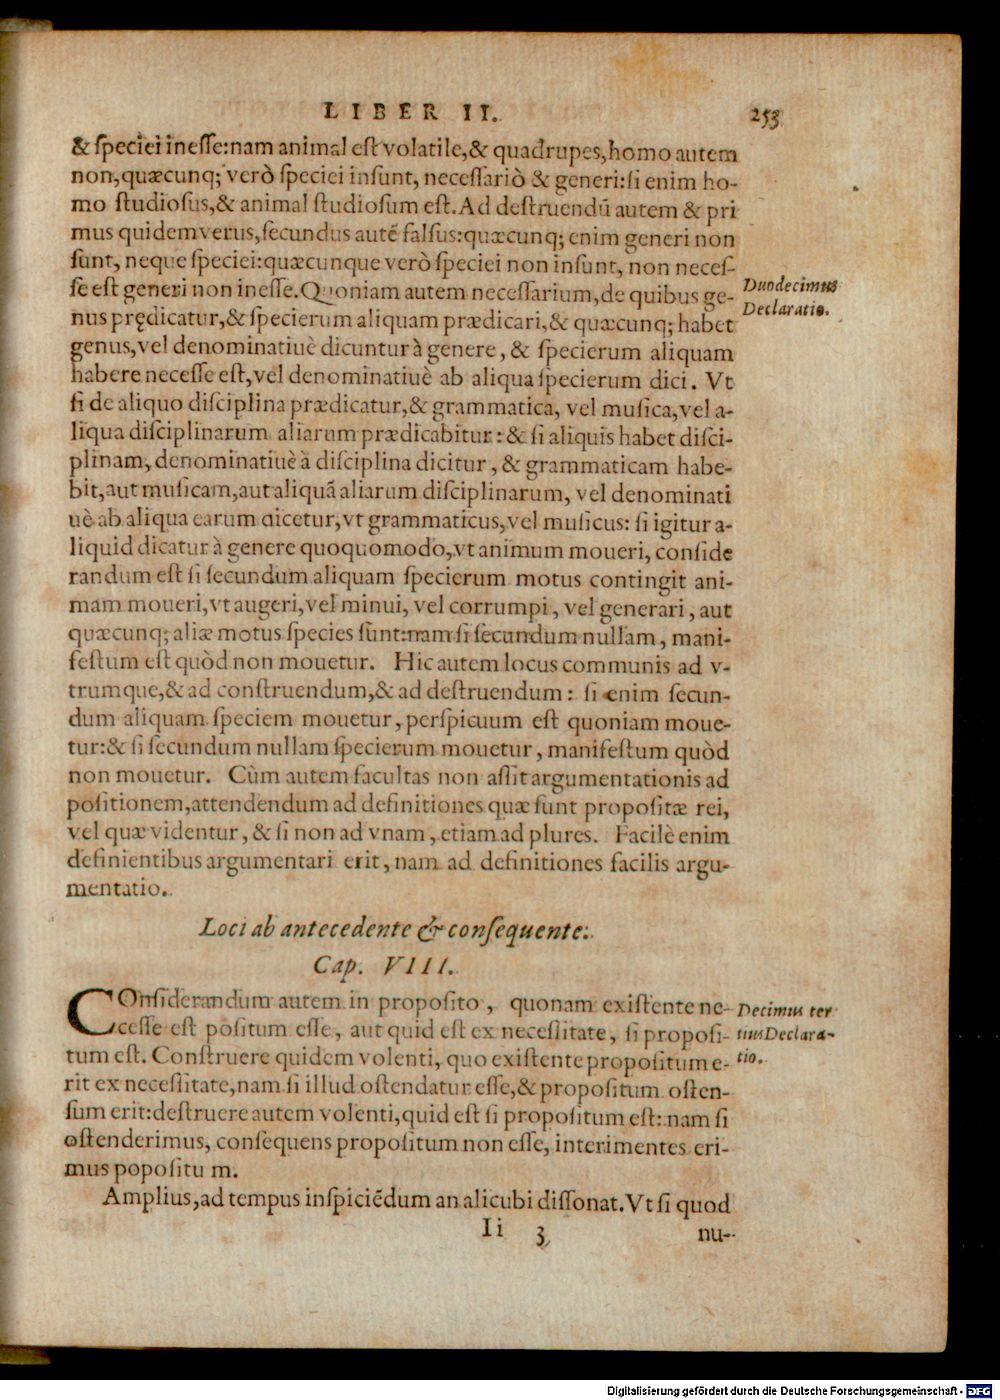 LIBER II. 253
& ſpeciei ineſſe:nam animal eſt volatile,& quadrupes,homo autem
non,quæcunq; verò ſpeciei inſunt, neceſſariò & generi:ſi enim ho-
mo ſtudioſus,& animal ſtudioſum eſt.Ad deſtruendũ autem & pri
mus quidem verus,ſecundus autẽ falſus:quæcunq; enim generi non
ſunt, neque ſpeciei:quæcunque verò ſpeciei non inſunt, non neceſ-
ſe eſt generi non ineſſe.Quoniam autem neceſſarium,de quibus ge-
nus prędicatur,& ſpecierum aliquam prædicari,& quæcunq; habet
genus,vel denominatiuè dicuntur à genere, & ſpecierum aliquam
habere neceſſe eſt,vel denominatiuè ab aliqua ſpecierum dici. Vt
ſi de aliquo diſciplina prædicatur,& grammatica, vel muſica,vel a-
liqua diſciplinarum aliarum prædicabitur: & ſi aliquis habet diſci-
plinam, denominatiuè à diſciplina dicitur, & grammaticam habe-
bit,aut muſicam,aut aliquã aliarum diſciplinarum, vel denominati
uè ab aliqua earum dicetur,vt grammaticus,vel muſicus: ſi igitur a-
liquid dicatur à genere quoquomodo,vt animum moueri, conſide
randum eſt ſi ſecundum aliquam ſpecierum motus contingit ani-
mam moueri,vt augeri,vel minui, vel corrumpi, vel generari, aut
quæcunq; aliæ motus ſpecies ſunt:nam ſi ſecundum nullam, mani-
feſtum eſt quòd non mouetur. Hic autem locus communis ad v-
trumque,& ad conſtruendum,& ad deſtruendum: ſi enim ſecun-
dum aliquam ſpeciem mouetur, perſpicuum eſt quoniam moue-
tur:& ſi ſecundum nullam ſpecierum mouetur, manifeſtum quòd
non mouetur. Cùm autem facultas non aſſit argumentationis ad
poſitionem,attendendum ad definitiones quæ ſunt propoſitæ rei,
vel quæ videntur, & ſi non ad vnam, etiam ad plures. Facilè enim
definientibus argumentari erit, nam ad definitiones facilis argu-
mentatio.
Duodecimus
Declaratio.
Loci ab antecedente & conſequente.
Cap. VIII.
COnſiderandum autem in propoſito, quonam exiſtente ne-
ceſſe eſt poſitum eſſe, aut quid eſt ex neceſſitate, ſi propoſi-
tum eſt. Conſtruere quidem volenti, quo exiſtente propoſitum e-
rit ex neceſſitate,nam ſi illud oſtendatur eſſe,& propoſitum oſten-
ſum erit:deſtruere autem volenti,quid eſt ſi propoſitum eſt: nam ſi
oſtenderimus, conſequens propoſitum non eſſe, interimentes eri-
mus popoſitu m.
Decimus ter
tius Declara-
tio.
Amplius,ad tempus inſpiciẽdum an alicubi diſſonat.Vt ſi quod
Ii 3 nu-
Digitalisierung gefördert durch die Deutsche Forschungsgemeinschaft - DFG